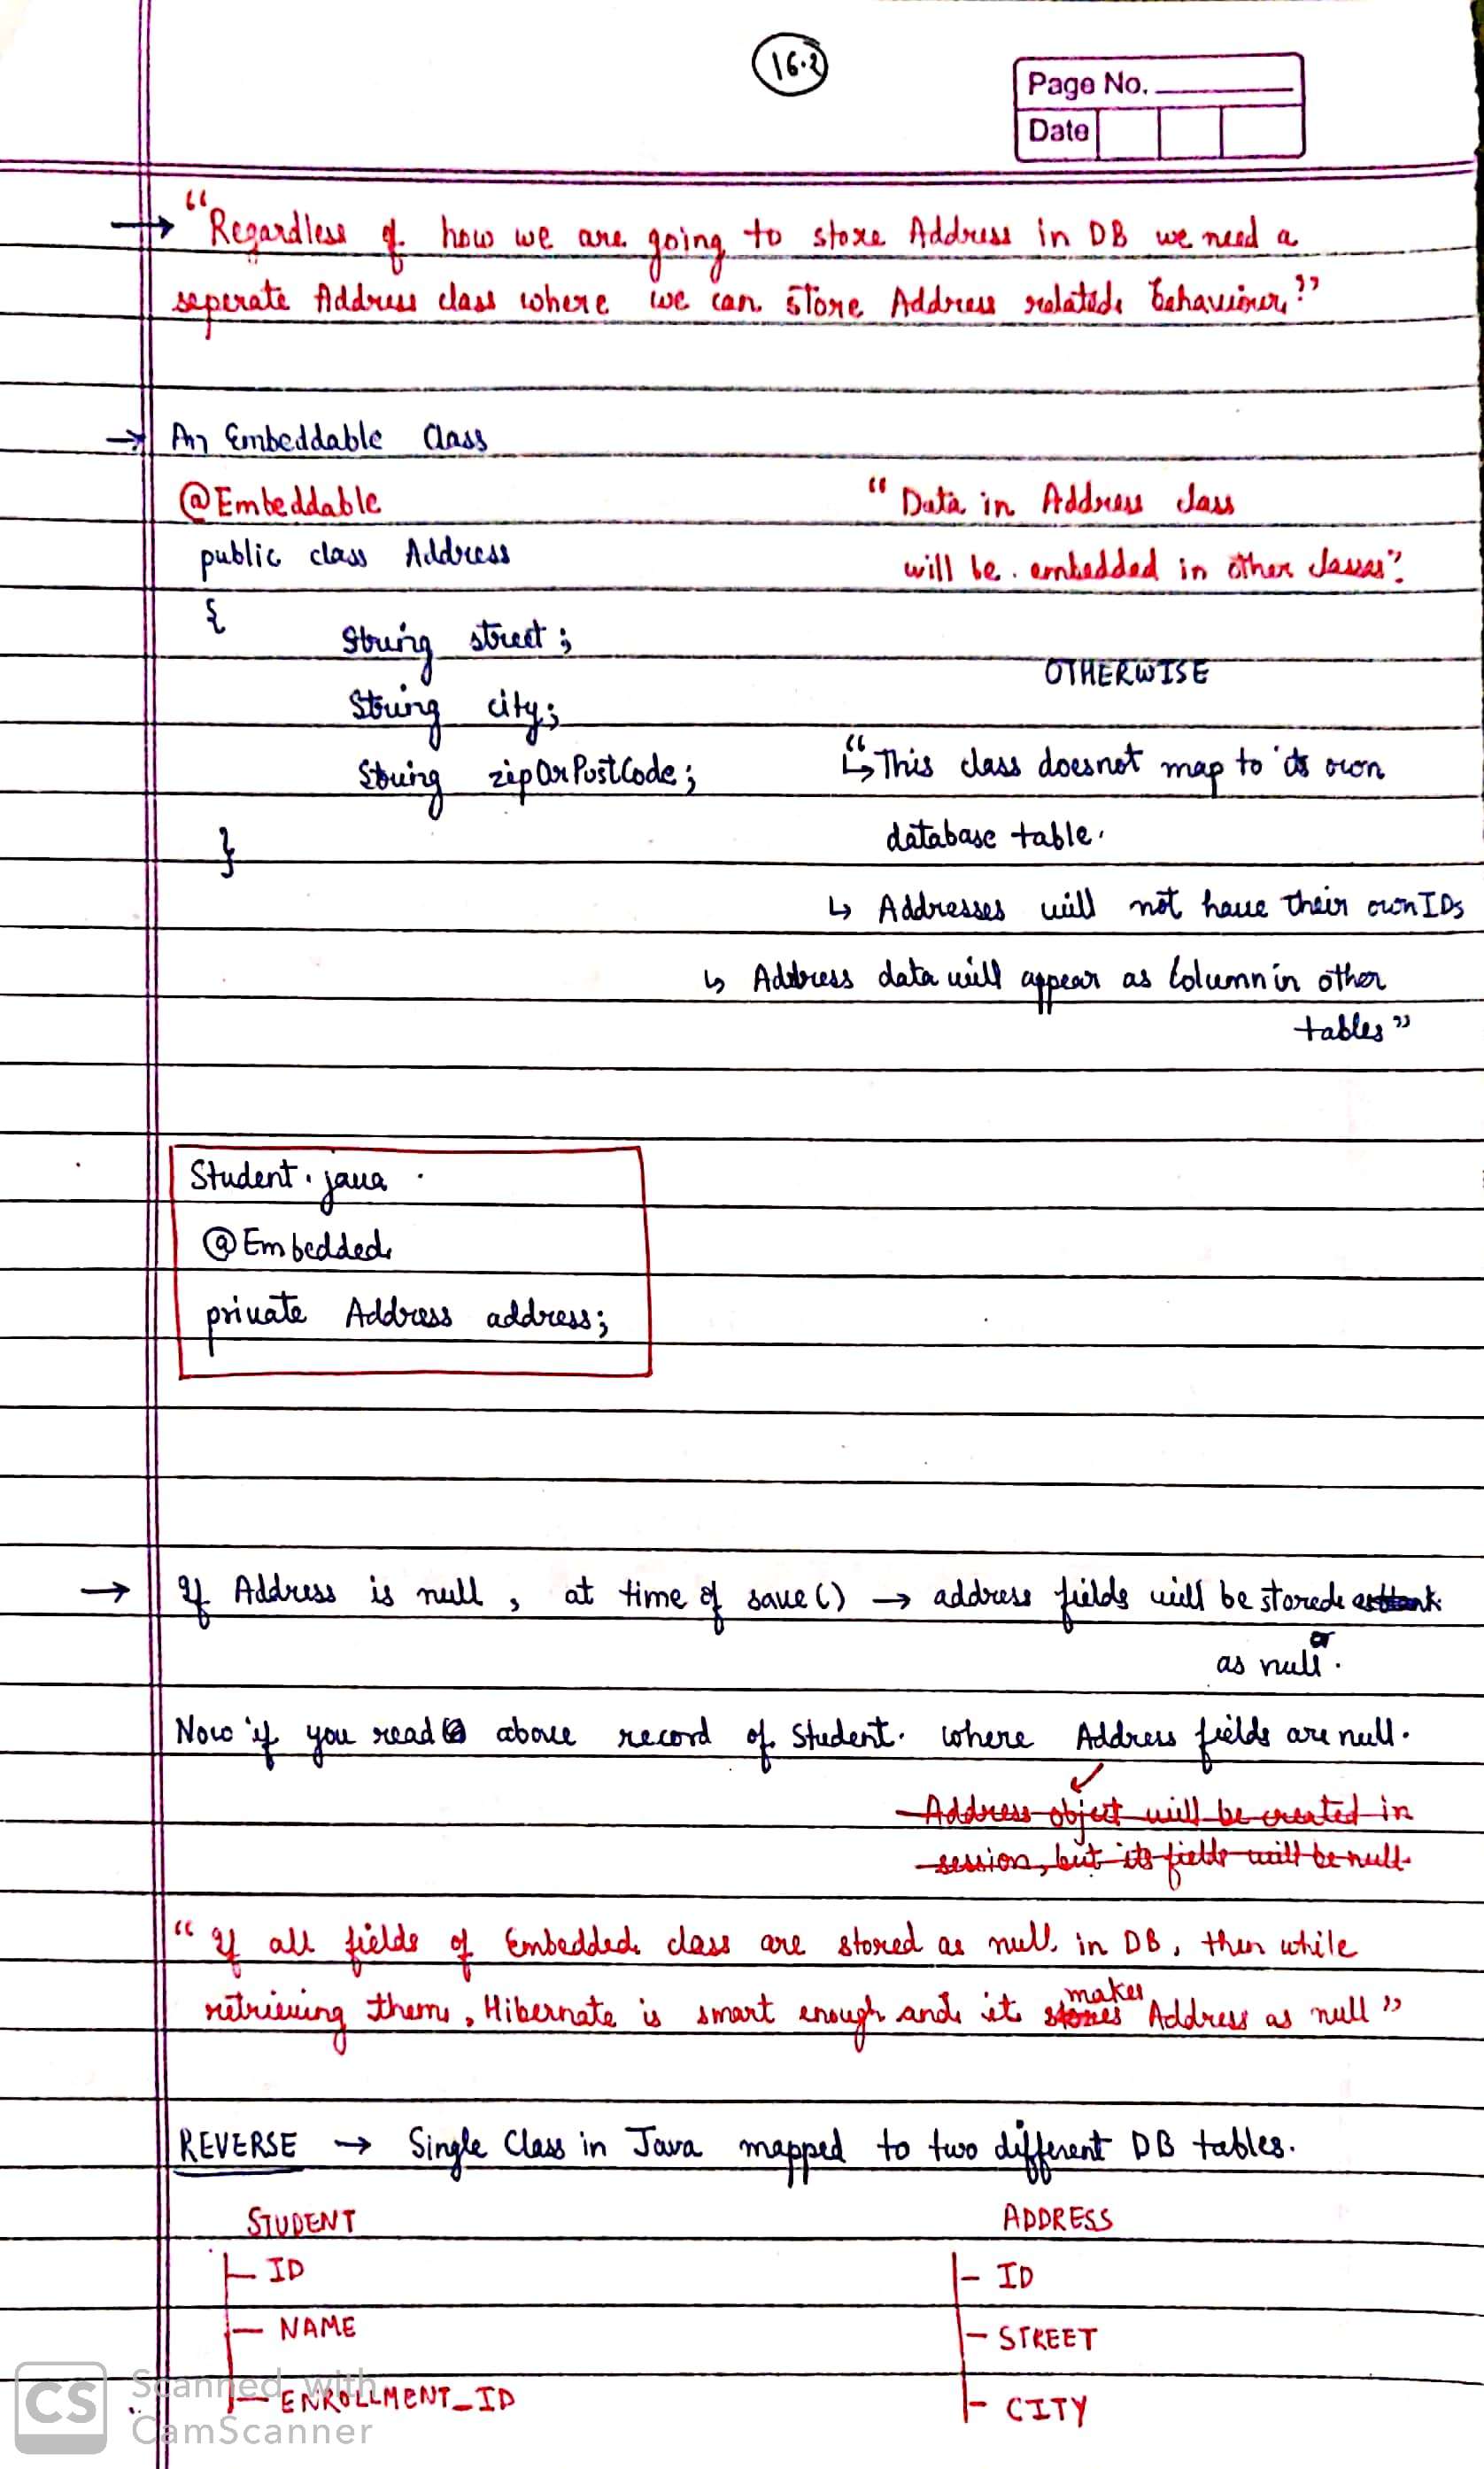 16.2
Page No.
Date
→ "Regardless of how we are going to store Address in DB we need a
seperate Address class where we can store Address related behaviour"
→ An Embeddable Class
@Embeddable
"Data in Address class
public class Address
will be embedded in other classes"
{
String street;
OTHERWISE
String city;
String zipOrPostCode;
"↳ This class doesnot map to its own
database table.
}
↳ Addresses will not have their own IDs
↳ Address data will appear as Column in other
tables"
Student.java
@Embedded
private Address address;
→ If Address is null, at time of save() → address fields will be stored
as null.
Now if you read above record of Student. where Address fields are null.
Address object will be created in
session, but its fields will be null.
"If all fields of Embedded class are stored as null in DB, then while
retrieving them, Hibernate is smart enough and it stores makes Address as null"
REVERSE → Single Class in Java mapped to two different DB tables.
STUDENT ADDRESS
ID ID
NAME STREET
ENROLLMENT_ID CITY
CS Scanned with
CamScanner